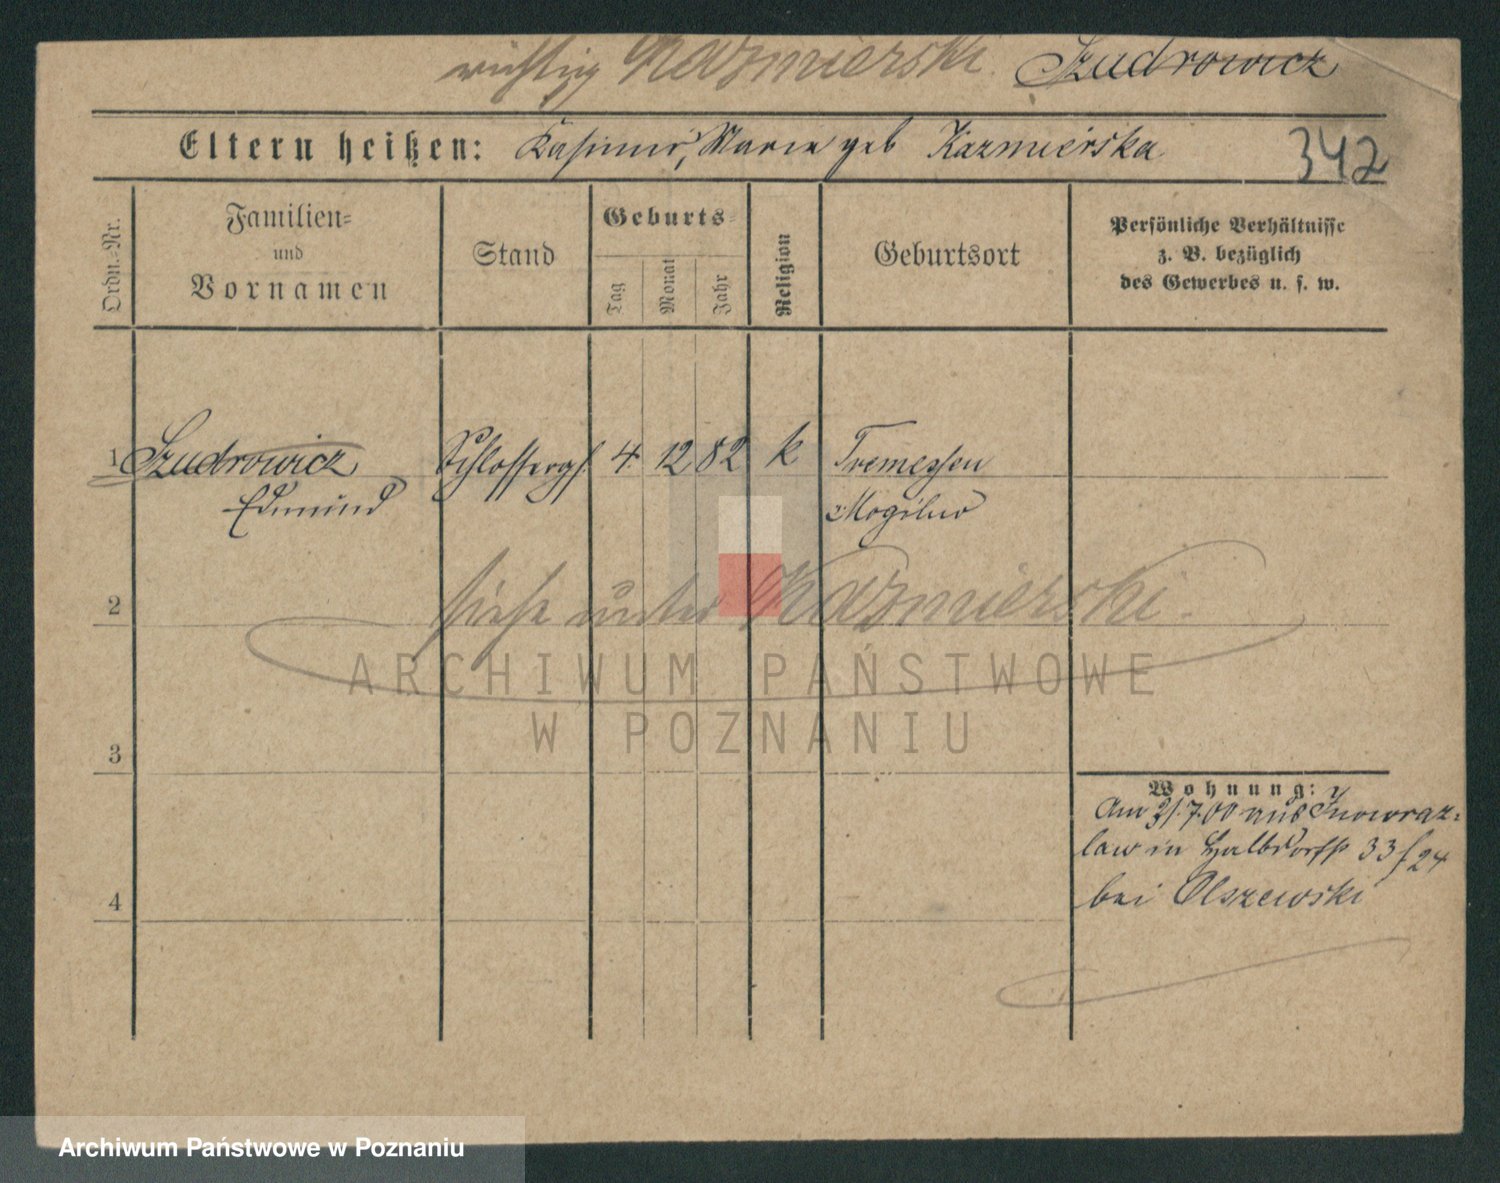 richtig Kazmierski. Szudrowicz
Eltern heißen: Kasimir, Maria geb Kazmierska
342
Ordn.-Nr.
Familien=
und
Vornamen
Stand
Geburts=
Tag
Monat
Jahr
Religion
Geburtsort
Persönliche Verhältnisse
z. B. bezüglich
des Gewerbes u. s. w.
1 Szudrowicz Schlosserges. 4. 12 82 k Tremessen
Edmund Mogilno
2 siehe unter Kazmierski.
ARCHIWUM PAŃSTWOWE
W POZNANIU
3
Wohnung:
Am 3/.7.00 aus Inowraz=
law in Halbdorfstr 33
bei Olszewski
4
Archiwum Państwowe w Poznaniu